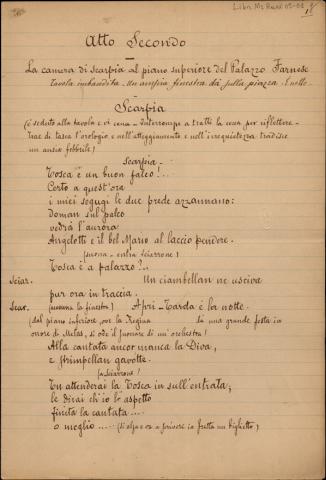 Libr. Ms Ricor 02-01
1
Atto Secondo
La camera di Scarpia al piano superiore del Palazzo Farnese
tavola imbandita. Un'ampia finestra dà sulla piazza. È notte.
Scarpia
(è seduto alla tavola e ci cena - interrompe a tratti la cena per riflettere -
trae di tasca l'orologio e nell'atteggiamento e nell'irrequietezza tradisce
un ansia febbrile)
Scarpia
Tosca è un buon falco!..
Certo a quest'ora
i miei segugi le due prede azzannano:
doman sul palco
vedrà l'aurora
Angelotti e il bel Mario al laccio pendere.
(suona - entra Sciarrone)
Tosca è a palazzo?..
Sciar. Un ciambellan ne usciva
pur ora in traccia.
Scar. (accenna la finestra) Apri - Tarda è la notte.
(dal piano inferiore ove la Regina dà una grande festa in
onore di Melas, si ode il suonare di un'orchestra)
Alla cantata ancor manca la Diva,
e strimpellan gavotte.
(a Sciarrone)
Tu attenderai la Tosca in sull'entrata;
le dirai ch'io l'aspetto
finita la cantata....
o meglio..... (si alza e va a scrivere in fretta un biglietto)